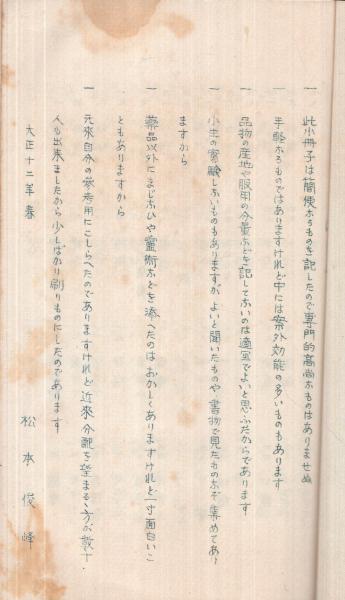 一 此小冊子は簡便なものを記したので専門的高尚なものはありませぬ
一 手軽なるものではありますけれど中には案外効能の多いものもあります
一 品物の産地や服用の分量などを記してないのは適宜でよいと思ふたからであります
一 小生の実験しないものもありますがよいと聞いたものや書物で見たものなぞ集めてあり
ますから
一 薬品以外にまじなひや霊術などを添へたのはおかしくありますけれど一寸面白いこ
ともありますから
一 元来自分の参考用にこしらへたのでありますけれど近来分譲を望まるゝ方が数十
人も出来ましたから少しばかり刷りものにしたのであります
大正十二年春
松本俊峰